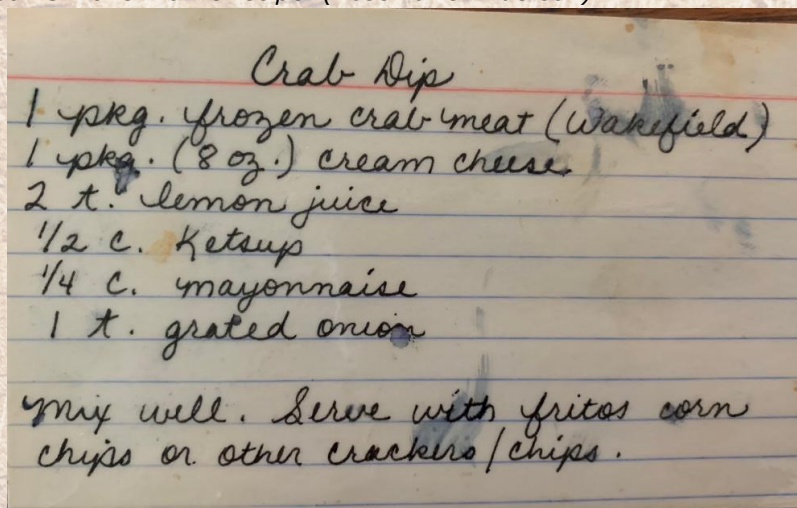 Crab Dip
1 pkg. frozen crab meat (Wakefield)
1 pkg. (8 oz.) cream cheese
2 t. lemon juice
1/2 c. Ketsup
1/4 c. mayonnaise
1 t. grated onion
Mix well. Serve with fritos corn
chips or other crackers/chips.